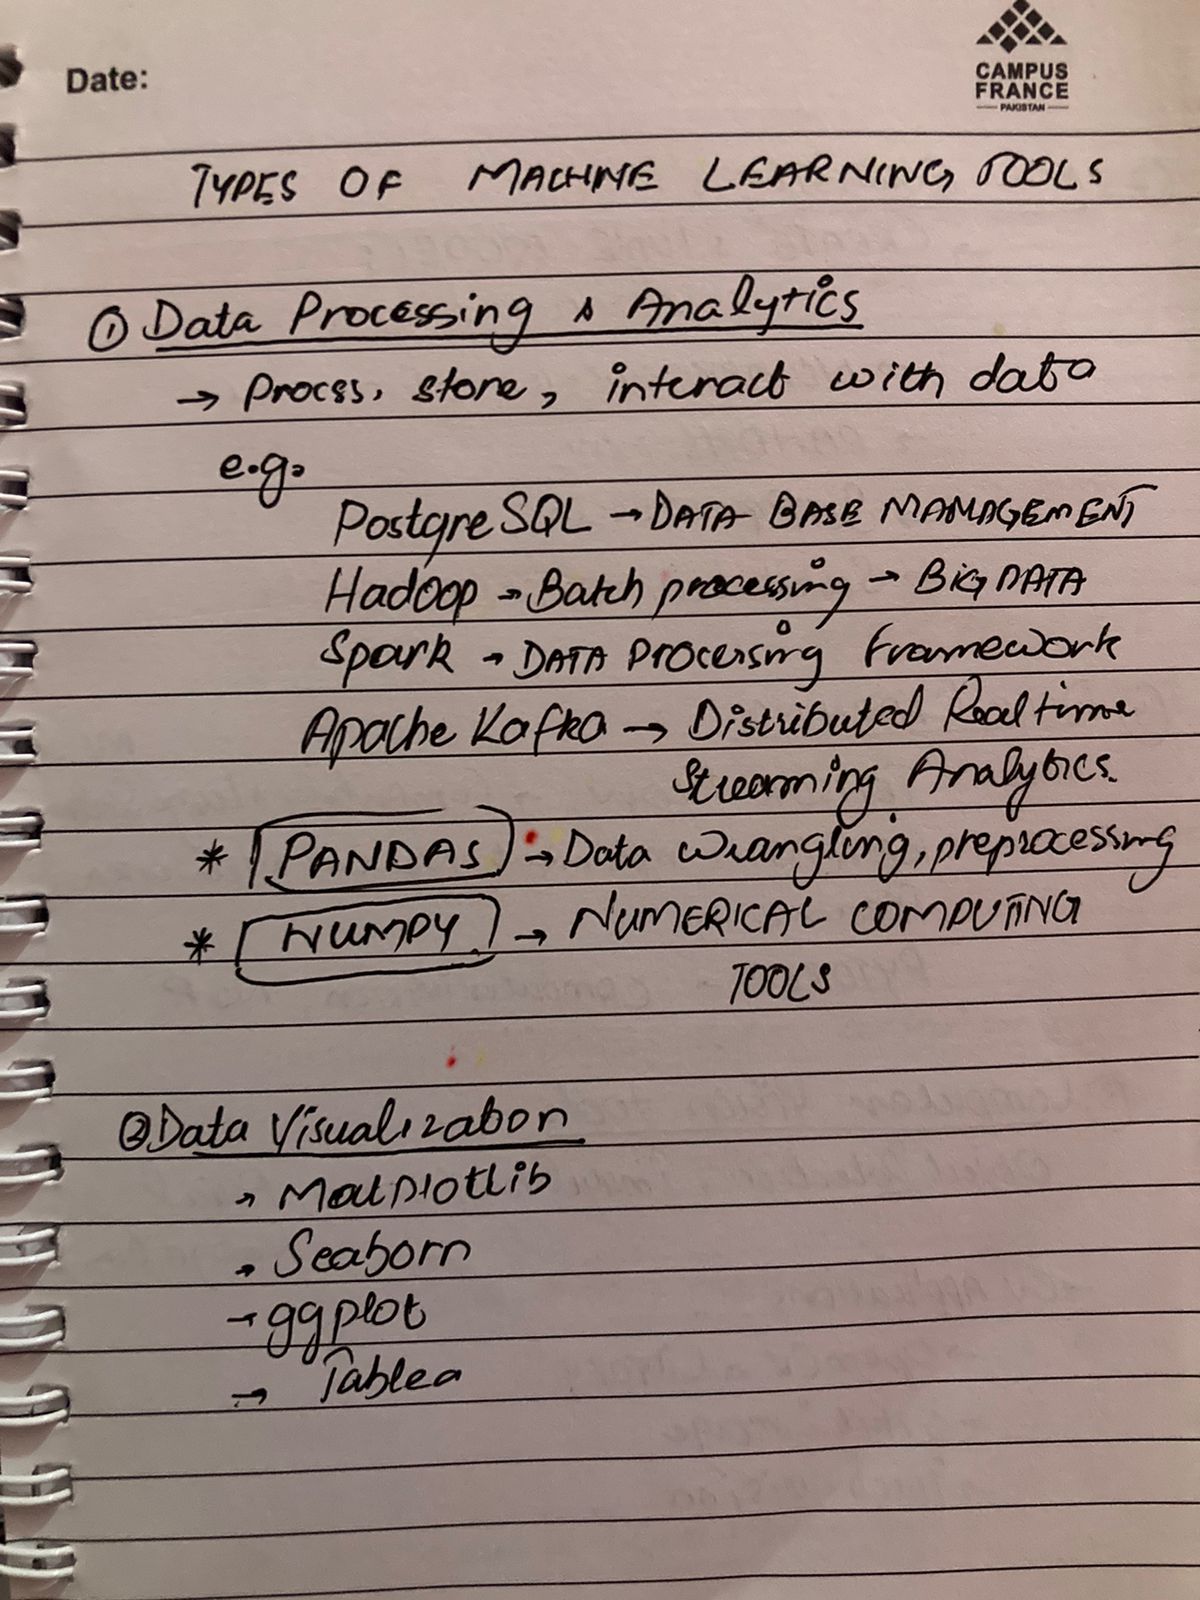 Date:
CAMPUS
FRANCE
PAKISTAN
TYPES OF MACHINE LEARNING TOOLS
① Data Processing & Analytics
→ Process, store, interact with data
e.g.
PostgreSQL → DATA BASE MANAGEMENT
Hadoop → Batch processing → BIG DATA
Spark → DATA Processing Framework
Apache Kafka → Distributed Real time
Streaming Analytics.
* PANDAS → Data Wrangling, preprocessing
* NUMPY → NUMERICAL COMPUTING
TOOLS
② Data Visualization
→ Matplotlib
→ Seaborn
→ ggplot
→ Tablea